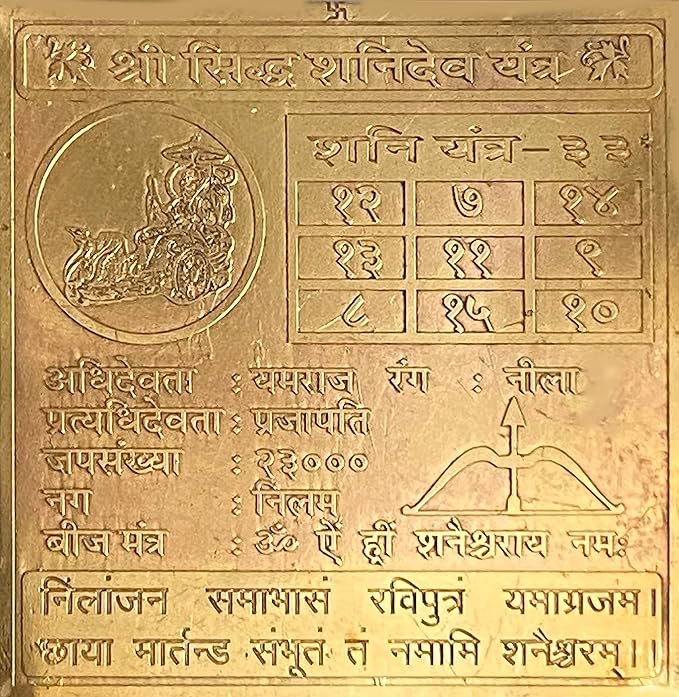 श्री सिद्ध शनिदेव यंत्र
शनि यंत्र - ३३
१२ ७ १४
१३ ११ ९
८ १५ १०
अधिदेवता : यमराज रंग : नीला
प्रत्यधिदेवता : प्रजापति
जपसंख्या : २३०००
नग : निलम्
बीज मंत्र : ॐ ऐं ह्रीं शनैश्चराय नमः
निलांजन समाभासं रविपुत्रं यमाग्रजम।
छाया मार्तन्ड संभूतं तं नमामि शनैश्चरम्।।